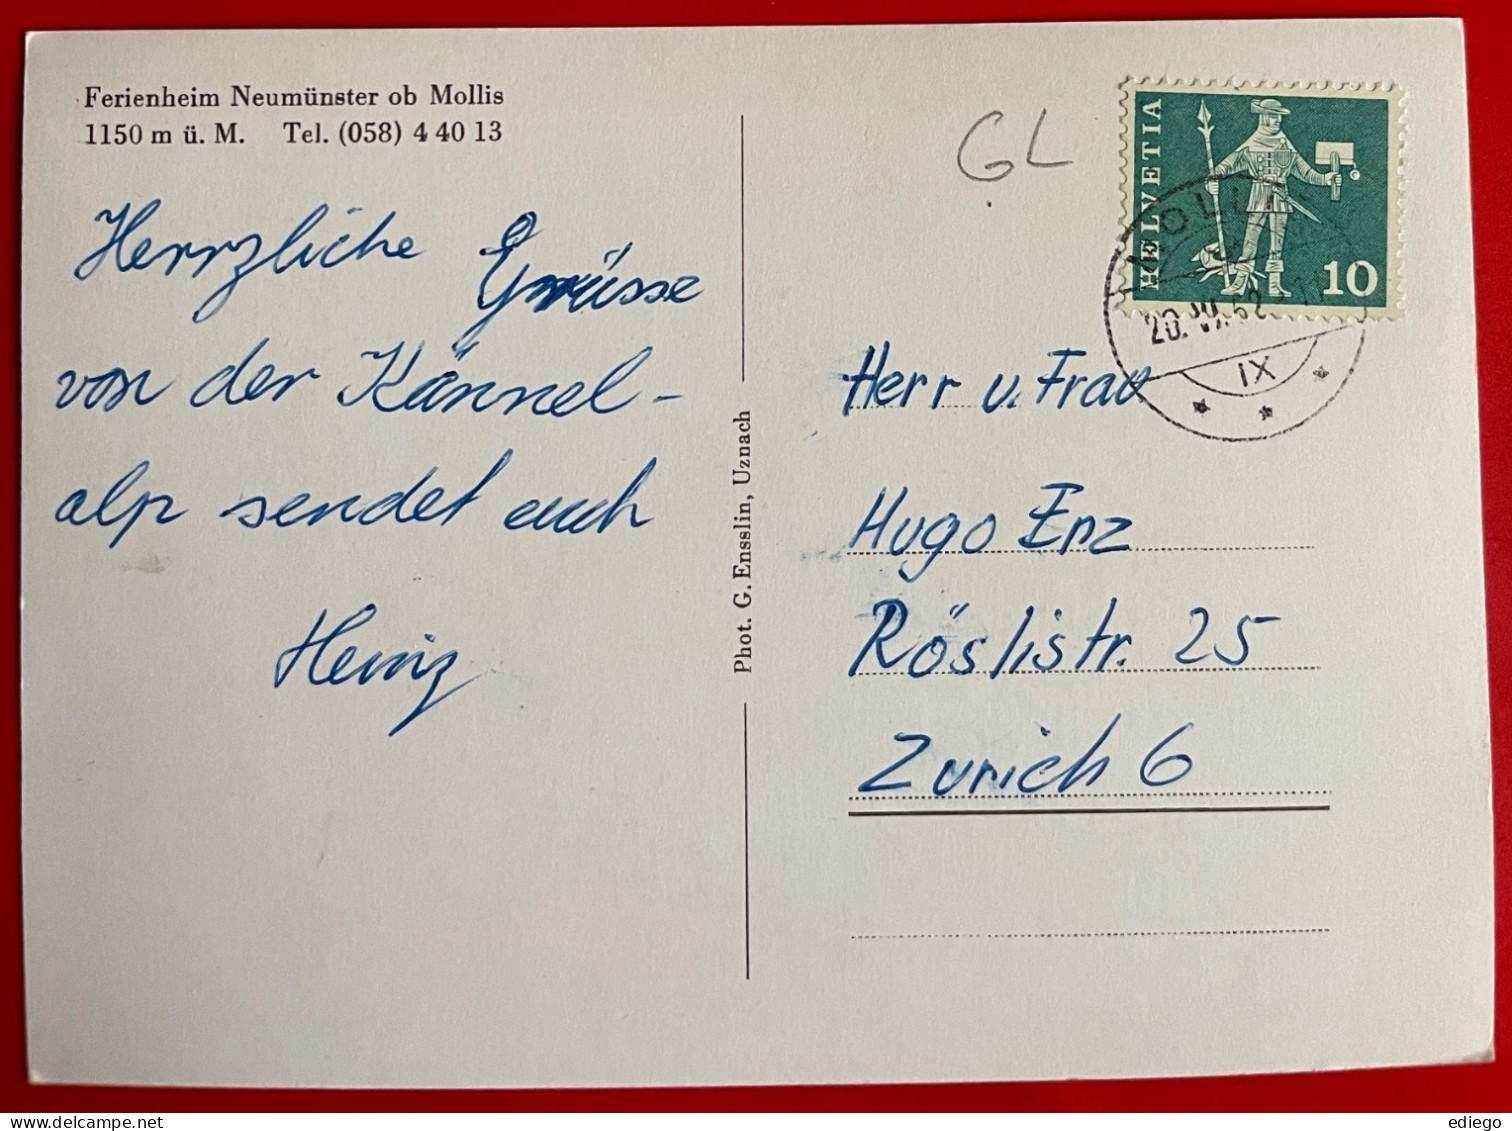 Ferienheim Neumünster ob Mollis
1150 m ü. M. Tel. (058) 4 40 13
GL
HELVETIA
10
MOLLIS
IX
Herrzliche Grüsse
von der Kännel-
alp sendet euch
Heinz
Phot. G. Ensslin, Uznach
Herr u. Frau
Hugo Enz
Röslistr. 25
Zürich 6
ediego